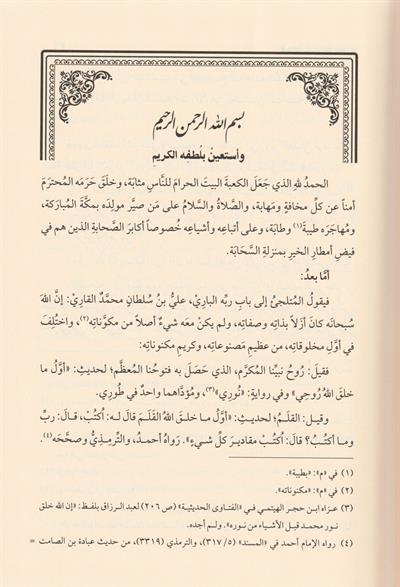 بسم الله الرحمن الرحيم
وأستعينُ بلُطفه الكريم
الحمدُ للهِ الذي جَعَلَ الكعبةَ البيتَ الحرامَ للنَّاسِ مثابَة، وخلَقَ حَرَمَه المُحترَمَ
أمناً عن كلِّ مخافةٍ ومَهابة، والصَّلاةُ والسَّلامُ على مَن صيَّر مولِدَه بمكَّةَ المُبارَكة،
ومُهاجَرَه طيبةَ(١) وطابَة، وعلى أتباعِه وأشياعِه خُصوصاً أكابرَ الصَّحابةِ الذين هم في
فيضِ أمطارِ الخيرِ بمنزلةِ السَّحَابَة.
أمَّا بعدُ:
فيقولُ المُلتَجئُ إلى بابِ ربِّه الباريْ، عليُّ بنُ سُلطانِ محمَّدٌ القاريْ: إنَّ اللهَ
سُبحانَه كانَ أزَلاً بذاتِه وصفاتِه، ولم يكنْ معَه شيءٌ أصلاً من مكوَّناتِه(٢)، واختُلِفَ
في أوَّلِ مخلوقاتِه، من عظيمِ مَصنوعاتِه، وكريمِ مكنوناتِه:
فقيلَ: رُوحُ نبيِّنا المُكرَّمِ، الذي حَصَلَ به فتوحُنا المُعظَّم؛ لحديثِ: «أوَّلُ ما
خلقَ اللهُ رُوحِي» وفي روايةٍ: «نُورِي»(٣)، ومُؤدَّاهما واحدٌ في طُورِي.
وقيل: القلَمُ؛ لحديثِ: «أوَّلُ ما خلقَ اللهُ القَلَمَ قالَ له: اُكتُبْ، قالَ: ربِّ
وما أكتُبُ؟ قالَ: اُكتُبْ مقاديرَ كلِّ شيءٍ». رَواه أحمدُ، والتِّرمذيُّ وصحَّحَه(٤).
(١) في «م»: «بطيبة».
(٢) في «م»: «مكنوناته».
(٣) عزاه ابن حجر الهيتمي في «الفتاوى الحديثية» (ص ٢٠٦) لعبد الرزاق بلفظ: «إن الله خلق
نور محمد قبل الأشياء من نوره». ولم أجده.
(٤) رواه الإمام أحمد في «المسند» (٥/ ٣١٧)، والترمذي (٣٣١٩)، من حديث عبادة بن الصامت =